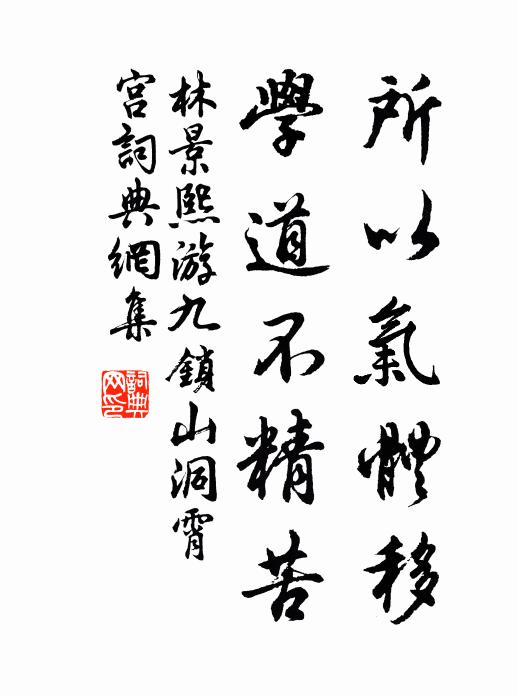 所以氣體移
學道不精苦
林景熙游九鎖山洞霄
宮詞典網集
詞典網印